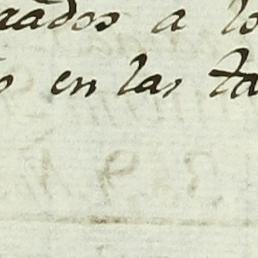 rados a lo
s en las ta